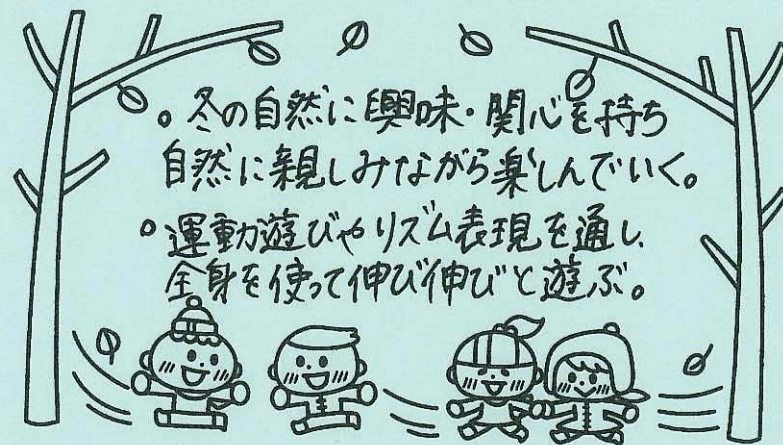 。冬の自然に興味・関心を持ち
自然に親しみながら楽しんでいく。
。運動遊びやリズム表現を通し、
全身を使って伸び伸びと遊ぶ。